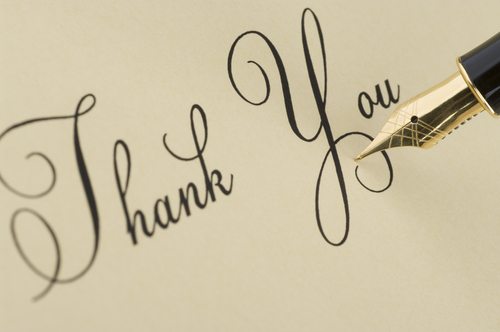 Thank You